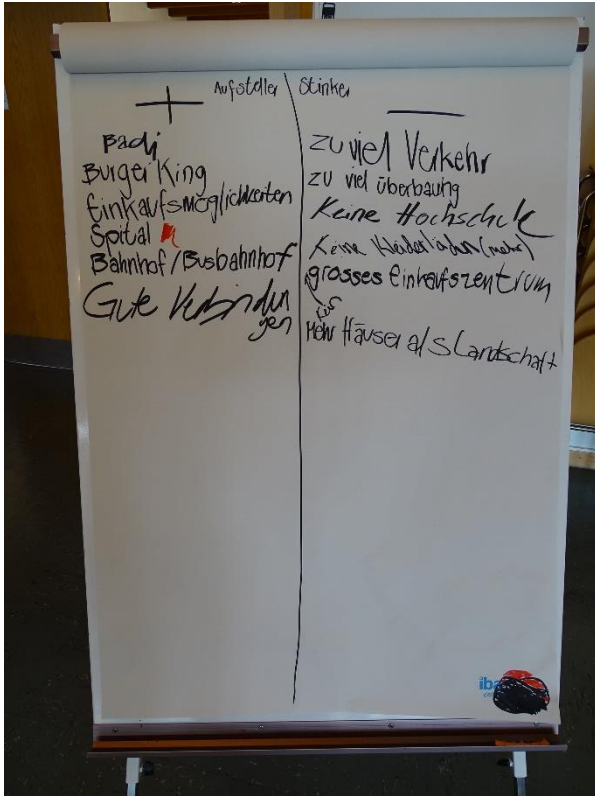 Aufsteller
Badi
Burger King
Einkaufsmöglichkeiten
Spital
Bahnhof/Busbahnhof
Gute Verbindun
gen
Stinker
zu viel Verkehr
zu viel überbauung
Keine Hochschule
Keine Kleiderläden (mehr)
grosses Einkaufszentrum
Mehr Häuser als Landschaft
iba